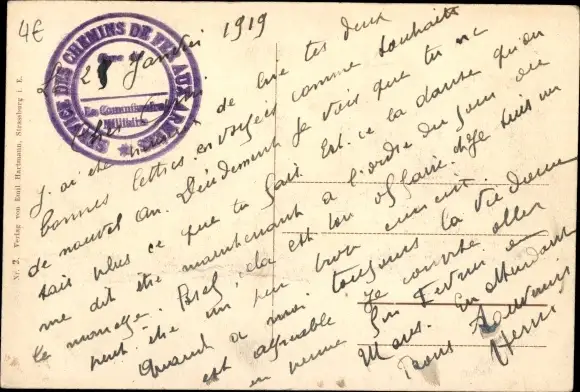 4€
Le 2 Janvier 1919
SERVICE DES CHEMINS DE FER AUX ARMÉES
Le Commissaire
Militaire
J'ai été de lire tes deux
bonnes lettres envoyées comme souhaits
de nouvel an. Décidément je vois que tu ne
sais plus ce que tu fais. Est-ce la danse qu'on
me dit être maintenant à l'ordre du jour ou
le mariage. Bref, là est ton affaire. Je suis un
peut être un peu trop
Quant à moi toujours la vie d'
est agréable Je compte aller
en perme fin Février ou
Mars. En attendant
Bons Souvenirs
Henri
Nr. 2. Verlag von Emil Hartmann, Strassburg i. E.